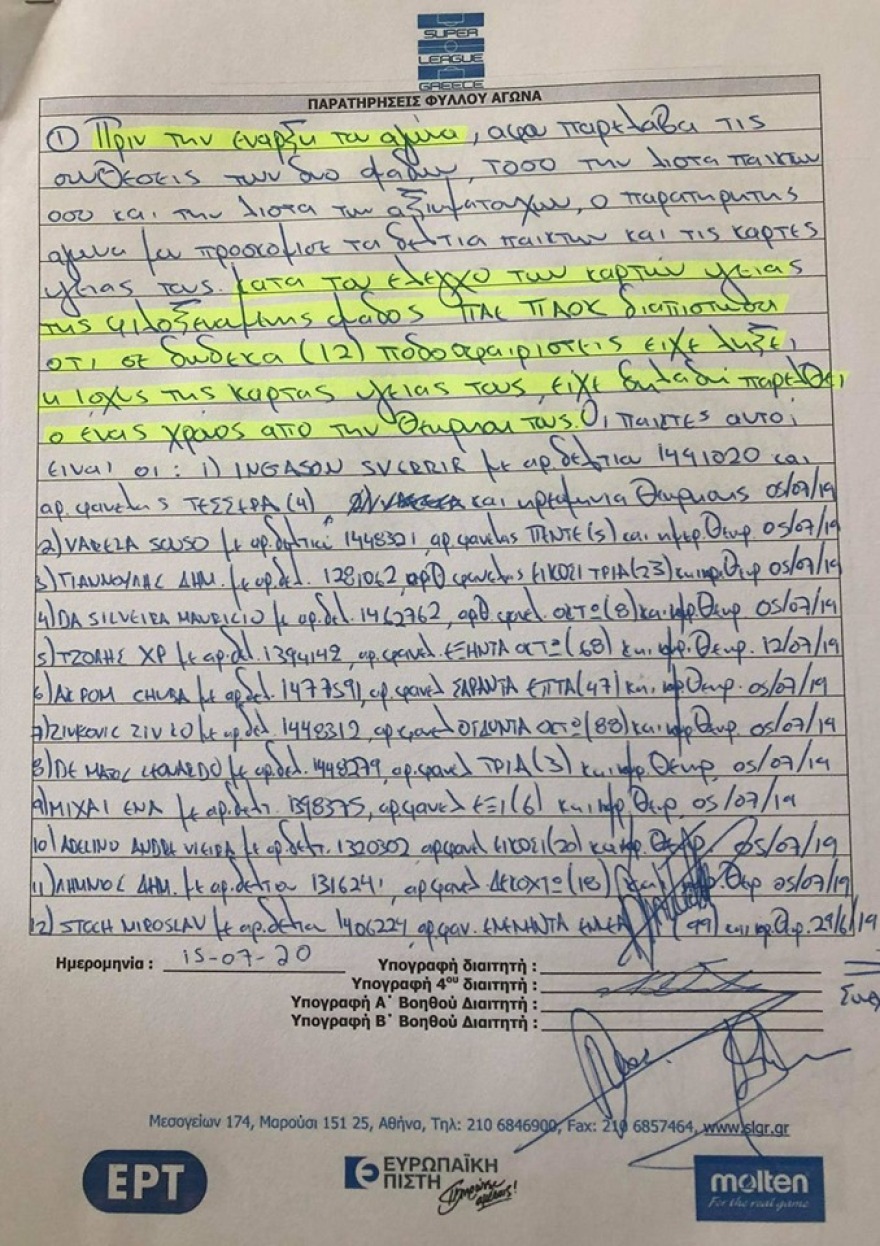 SUPER
LEAGUE
GREECE
ΠΑΡΑΤΗΡΗΣΕΙΣ ΦΥΛΛΟΥ ΑΓΩΝΑ
① Πριν την εναρξη του αγωνα, αφου παρελαβα τις
συνθεσεις των δυο ομαδων, τοσο την λιστα παικτων
οσο και την λιστα των αξιωματουχων, ο παρατηρητης
αγωνα μου προσκομισε τα δελτια παικτων και τις καρτες
υγειας τους. κατα τον ελεγχο των καρτων υγειας
της φιλοξενουμενης ομαδος ΠΑΕ ΠΑΟΚ διαπιστωθηκε
οτι σε δωδεκα (12) ποδοσφαιριστες ειχε ληξει
η ισχυς της καρτας υγειας τους, ειχε δηλαδη παρελθει
ο ενας χρονος από την θεωρηση τους. Οι παικτες αυτοι
ειναι οι : 1) INGASON SVERRIR με αρ. δελτιου 1491020 και
αρ. φανελας ΤΕΣΣΕΡΑ (4) και ημερομηνια θεωρησης 05/07/19
2) VARELA SOUSO με αρ. δελτιου 1448321, αρ. φανελας ΠΕΝΤΕ (5) και ημερ. θεωρ 05/07/19
3) ΓΙΑΝΝΟΥΛΗΣ ΔΗΜ. με αρ. δελ. 1281062, αρθ φανελας ΕΙΚΟΣΙ ΤΡΙΑ (23) και ημ. θεωρ 05/07/19
4) DA SILVEIRA MAURICIO με αρ. δελ. 1462762, αρθ. φανελ. ΟΚΤΩ (8) και ημρ. θεωρ. 05/07/19
5) ΤΖΟΛΗΣ ΧΡ με αρ. δελ. 1394142, αρ. φανελ. ΕΞΗΝΤΑ ΟΚΤΩ (68) και ημρ. θεωρ. 12/07/19
6) AKPOM CHUBA με αρ. δελ. 1477591, αρ. φανελ ΣΑΡΑΝΤΑ ΕΠΤΑ (47) και ημρ θεωρ. 05/07/19
7) ZIVKOVIC ZIVKO με αρ. δελ. 1448312, αρ. φανελ ΟΓΔΟΝΤΑ ΟΚΤΩ (88) και ημρ. θεωρ. 05/07/19
8) DE MATOS LEONARDO με αρ. δελ. 1448279, αρ. φανελ ΤΡΙΑ (3) και ημρ. θεωρ. 05/07/19
9) ΜΙΧΑΙ ΕΝΑ με αρ. δελτ. 1398375, αρ. φανελ ΕΞΙ (6) και ημρ. θεωρ. 05/07/19
10) ADELINO ANDRE VIEIRA με αρ. δελτ. 1320302 αρ. φανελ ΕΙΚΟΣΙ (20) και ημ. θεωρ. 05/07/19
11) ΛΗΜΝΙΟΣ ΔΗΜ. με αρ. δελτιου 1316241 αρ. φανελ ΔΕΚΟΧΤΩ (18) και ημρ. θεωρ 05/07/19
12) STOCH MIROSLAV με αρ. δελτιου 1406224, αρ. φαν. ΕΝΕΝΗΝΤΑ ΕΝΝΕΑ (99) και ημρ. θεωρ. 29/6/19
Ημερομηνία : 15-07-20
Υπογραφή διαιτητή :
Υπογραφή 4ου διαιτητή :
Υπογραφή Α΄ Βοηθού Διαιτητή :
Υπογραφή Β΄ Βοηθού Διαιτητή :
Μεσογείων 174, Μαρούσι 151 25, Αθήνα, Τηλ: 210 6846900, Fax: 210 6857464, www.slgr.gr
ΕΡΤ
ΕΥΡΩΠΑΪΚΗ
ΠΙΣΤΗ
molten
For the real game